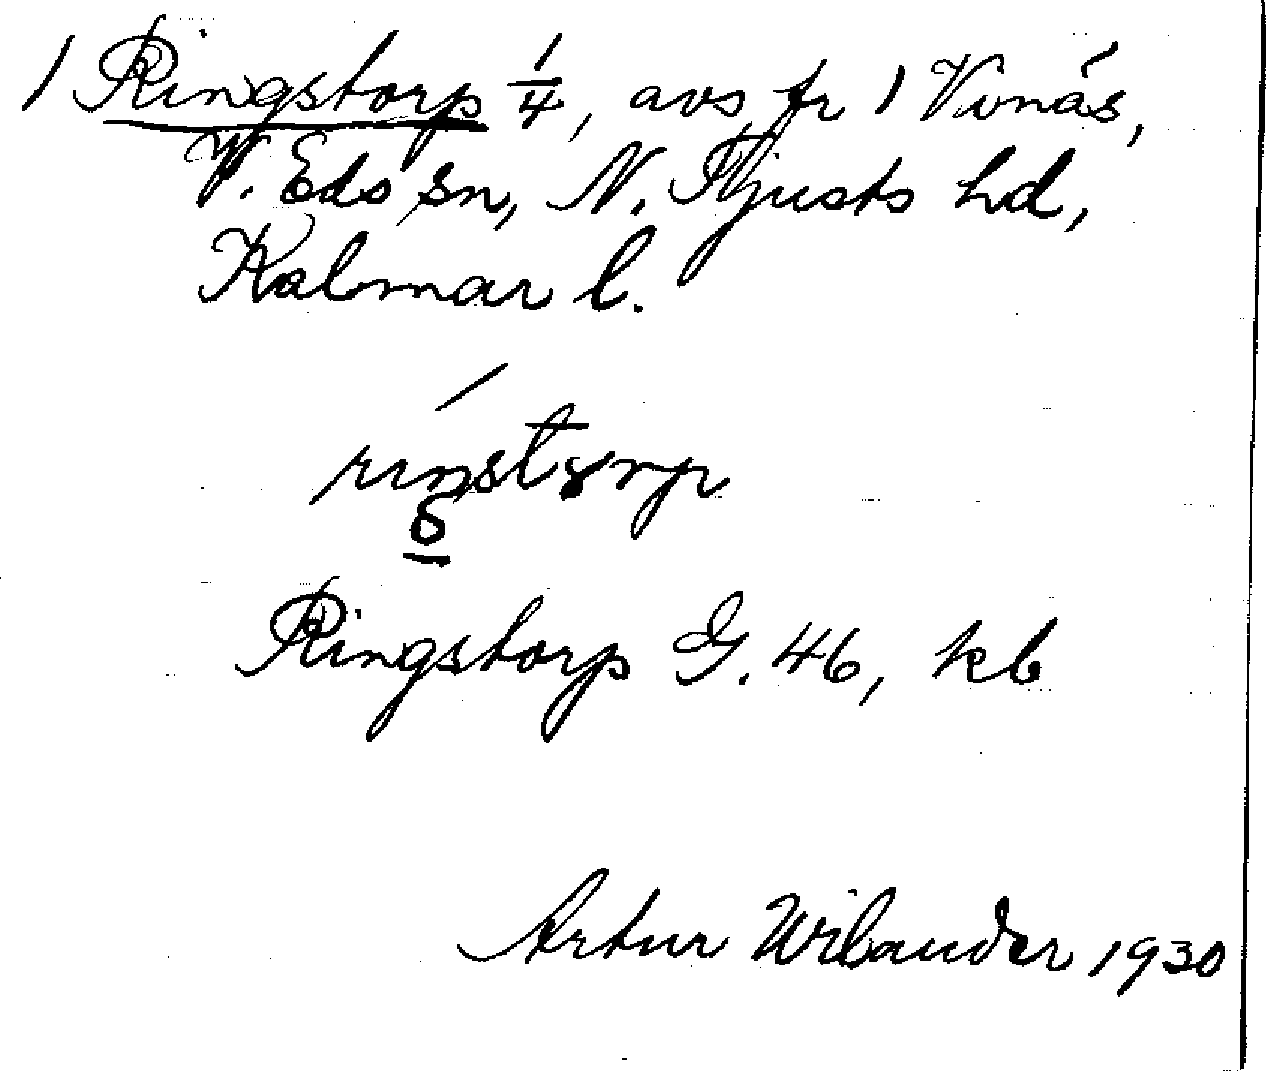 1 Ringstorp 1/4, avs fr 1 Vinäs,
V. Eds sn, N. Tjusts hd,
Kalmar l.
Ringstorp G. 46, kb
Artur Wilander 1930